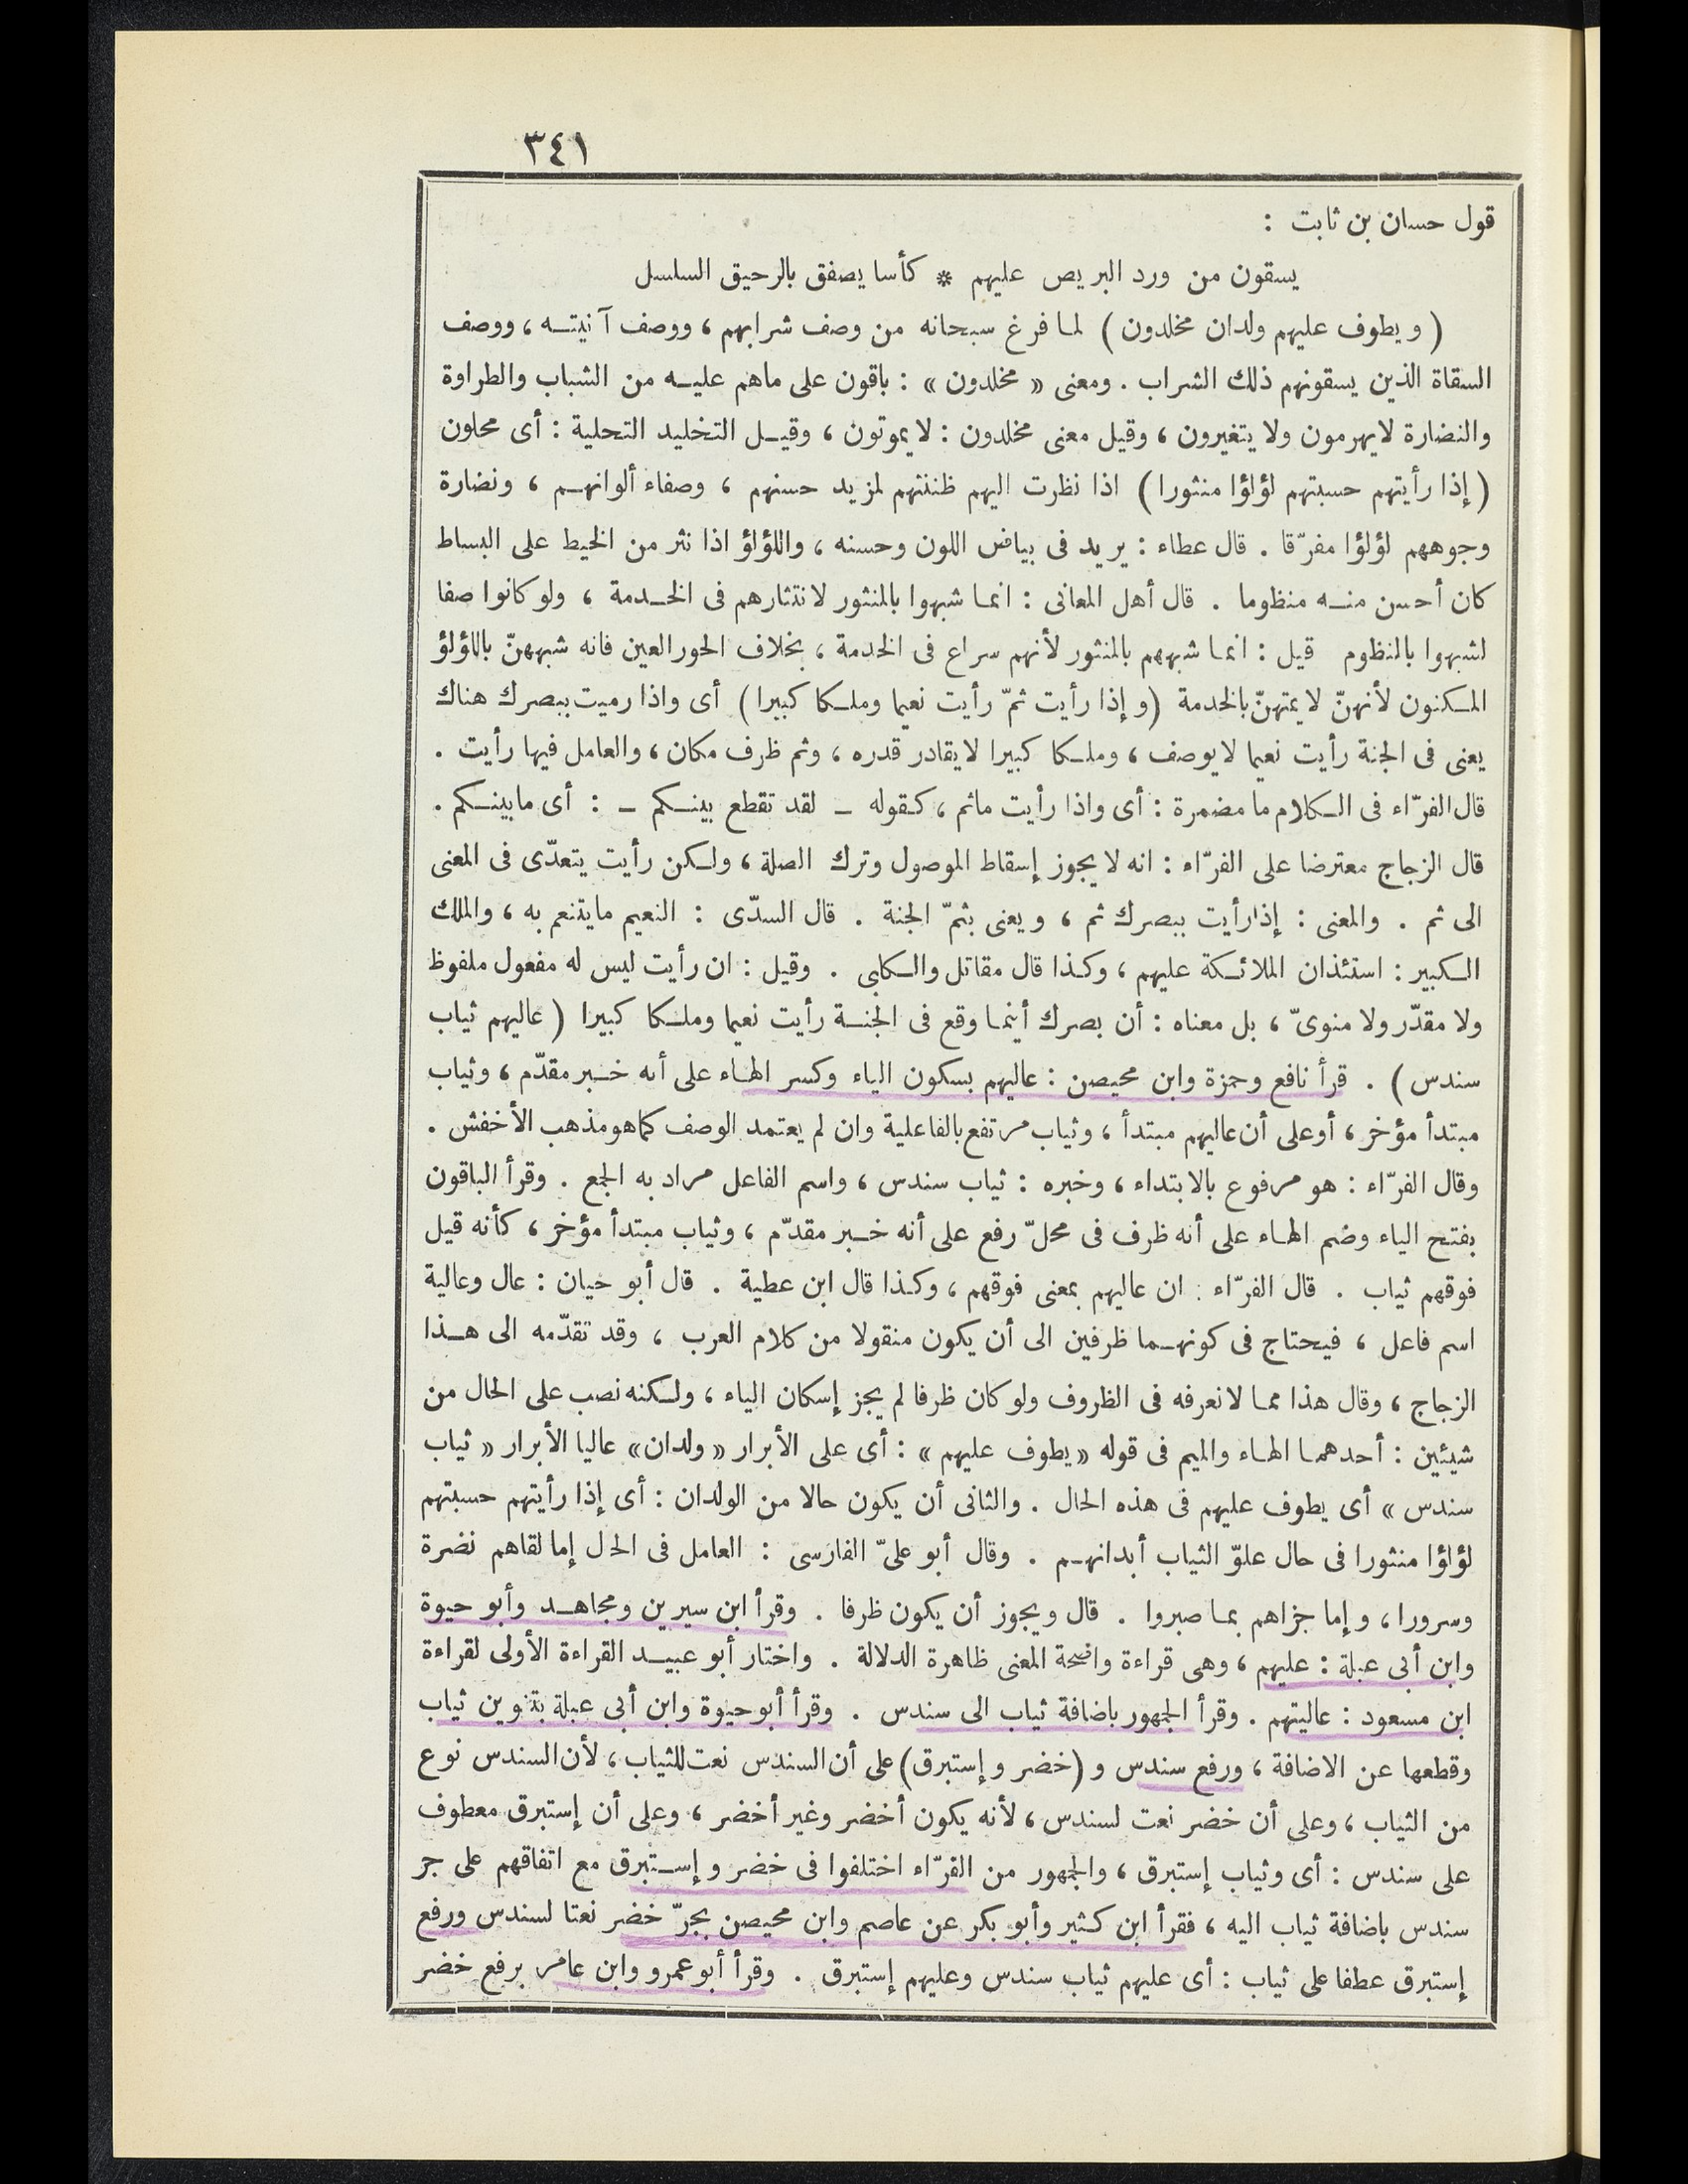 ٣٤١
قول حسان بن ثابت :
يسقون من ورد البريص عليهم * كأسا يصفق بالرحيق السلسل
( ويطوف عليهم ولدان مخلدون ) لما فرغ سبحانه من وصف شرابهم ، ووصف آنيته ، ووصف
السقاة الذين يسقونهم ذلك الشراب . ومعنى « مخلدون » : باقون على ماهم عليه من الشباب والطراوة
والنضارة لايهرمون ولا يتغيرون ، وقيل معنى مخلدون : لا يموتون ، وقيل التخليد التحلية : أى محلون
( إذا رأيتهم حسبتهم لؤلؤا منثورا ) اذا نظرت اليهم ظننتهم لمزيد حسنهم ، وصفاء ألوانهم ، ونضارة
وجوههم لؤلؤا مفرّقا . قال عطاء : يريد فى بياض اللون وحسنه ، واللؤلؤ اذا نثر من الخيط على البساط
كان أحسن منه منظوما . قال أهل المعانى : انما شبهوا بالمنثور لانتثارهم فى الخدمة ، ولو كانوا صفا
لشبهوا بالمنظوم قيل : انما شبههم بالمنثور لأنهم سراع فى الخدمة ، بخلاف الحور العين فانه شبههنّ باللؤلؤ
المكنون لأنهنّ لا يمتهنّ بالخدمة (وإذا رأيت ثمّ رأيت نعيما وملكا كبيرا ) أى واذا رميت ببصرك هناك
يعنى فى الجنة رأيت نعيما لايوصف ، وملكا كبيرا لايقادر قدره ، وثم ظرف مكان ، والعامل فيها رأيت .
قال الفرّاء فى الكلام ما مضمرة : أى واذا رأيت ماثم ، كقوله – لقد تقطع بينكم – : أى مابينكم .
قال الزجاج معترضا على الفرّاء : انه لا يجوز إسقاط الموصول وترك الصلة ، ولكن رأيت يتعدّى فى المعنى
الى ثم . والمعنى : إذا رأيت ببصرك ثم ، ويعنى بثمّ الجنة . قال السدّى : النعيم مايتنعم به ، والملك
الكبير : استئذان الملائكة عليهم ، وكذا قال مقاتل والكلبى . وقيل : ان رأيت ليس له مفعول ملفوظ
ولا مقدّر ولا منوىّ ، بل معناه : أن بصرك أينما وقع فى الجنة رأيت نعيما وملكا كبيرا ( عاليهم ثياب
سندس ) . قرأ نافع وحمزة وابن محيصن : عاليهم بسكون الياء وكسر الهاء على أنه خبر مقدّم ، وثياب
مبتدأ مؤخر ، أوعلى أن عاليهم مبتدأ ، وثياب مرتفع بالفاعلية وان لم يعتمد الوصف كماهومذهب الأخفش .
وقال الفرّاء : هو مرفوع بالابتداء ، وخبره : ثياب سندس ، واسم الفاعل مراد به الجمع . وقرأ الباقون
بفتح الياء وضم الهاء على أنه ظرف فى محلّ رفع على أنه خبر مقدّم ، وثياب مبتدأ مؤخر ، كأنه قيل
فوقهم ثياب . قال الفرّاء : ان عاليهم بمعنى فوقهم ، وكذا قال ابن عطية . قال أبو حيان : عال وعالية
اسم فاعل ، فيحتاج فى كونهما ظرفين الى أن يكون منقولا من كلام العرب ، وقد تقدّمه الى هذا
الزجاج ، وقال هذا مما لانعرفه فى الظروف ولو كان ظرفا لم يجز إسكان الياء ، ولكنه نصب على الحال من
شيئين : أحدهما الهاء والميم فى قوله « يطوف عليهم » : أى على الأبرار « ولدان» عاليا الأبرار « ثياب
سندس » أى يطوف عليهم فى هذه الحال . والثانى أن يكون حالا من الولدان : أى إذا رأيتهم حسبتهم
لؤلؤا منثورا فى حال علوّ الثياب أبدانهم . وقال أبو علىّ الفارسى : العامل فى الحال إما لقاهم نضرة
وسرورا ، وإما جزاهم بما صبروا . قال ويجوز أن يكون ظرفا . وقرأ ابن سيرين ومجاهد وأبو حيوة
وابن أبى عبلة : عليهم ، وهى قراءة واضحة المعنى ظاهرة الدلالة . واختار أبو عبيد القراءة الأولى لقراءة
ابن مسعود : عاليتهم . وقرأ الجمهور باضافة ثياب الى سندس . وقرأ أبوحيوة وابن أبى عبلة بتنوين ثياب
وقطعها عن الاضافة ، ورفع سندس و (خضر وإستبرق) على أن السندس نعت للثياب ، لأن السندس نوع
من الثياب ، وعلى أن خضر نعت لسندس ، لأنه يكون أخضر وغير أخضر ، وعلى أن إستبرق معطوف
على سندس : أى وثياب إستبرق ، والجمهور من الفرّاء اختلفوا فى خضر وإستبرق مع اتفاقهم على جر
سندس باضافة ثياب اليه ، فقرأ ابن كثير وأبو بكر عن عاصم وابن محيصن بجرّ خضر نعتا لسندس ورفع
إستبرق عطفا على ثياب : أى عليهم ثياب سندس وعليهم إستبرق . وقرأ أبو عمرو وابن عامر برفع خضر